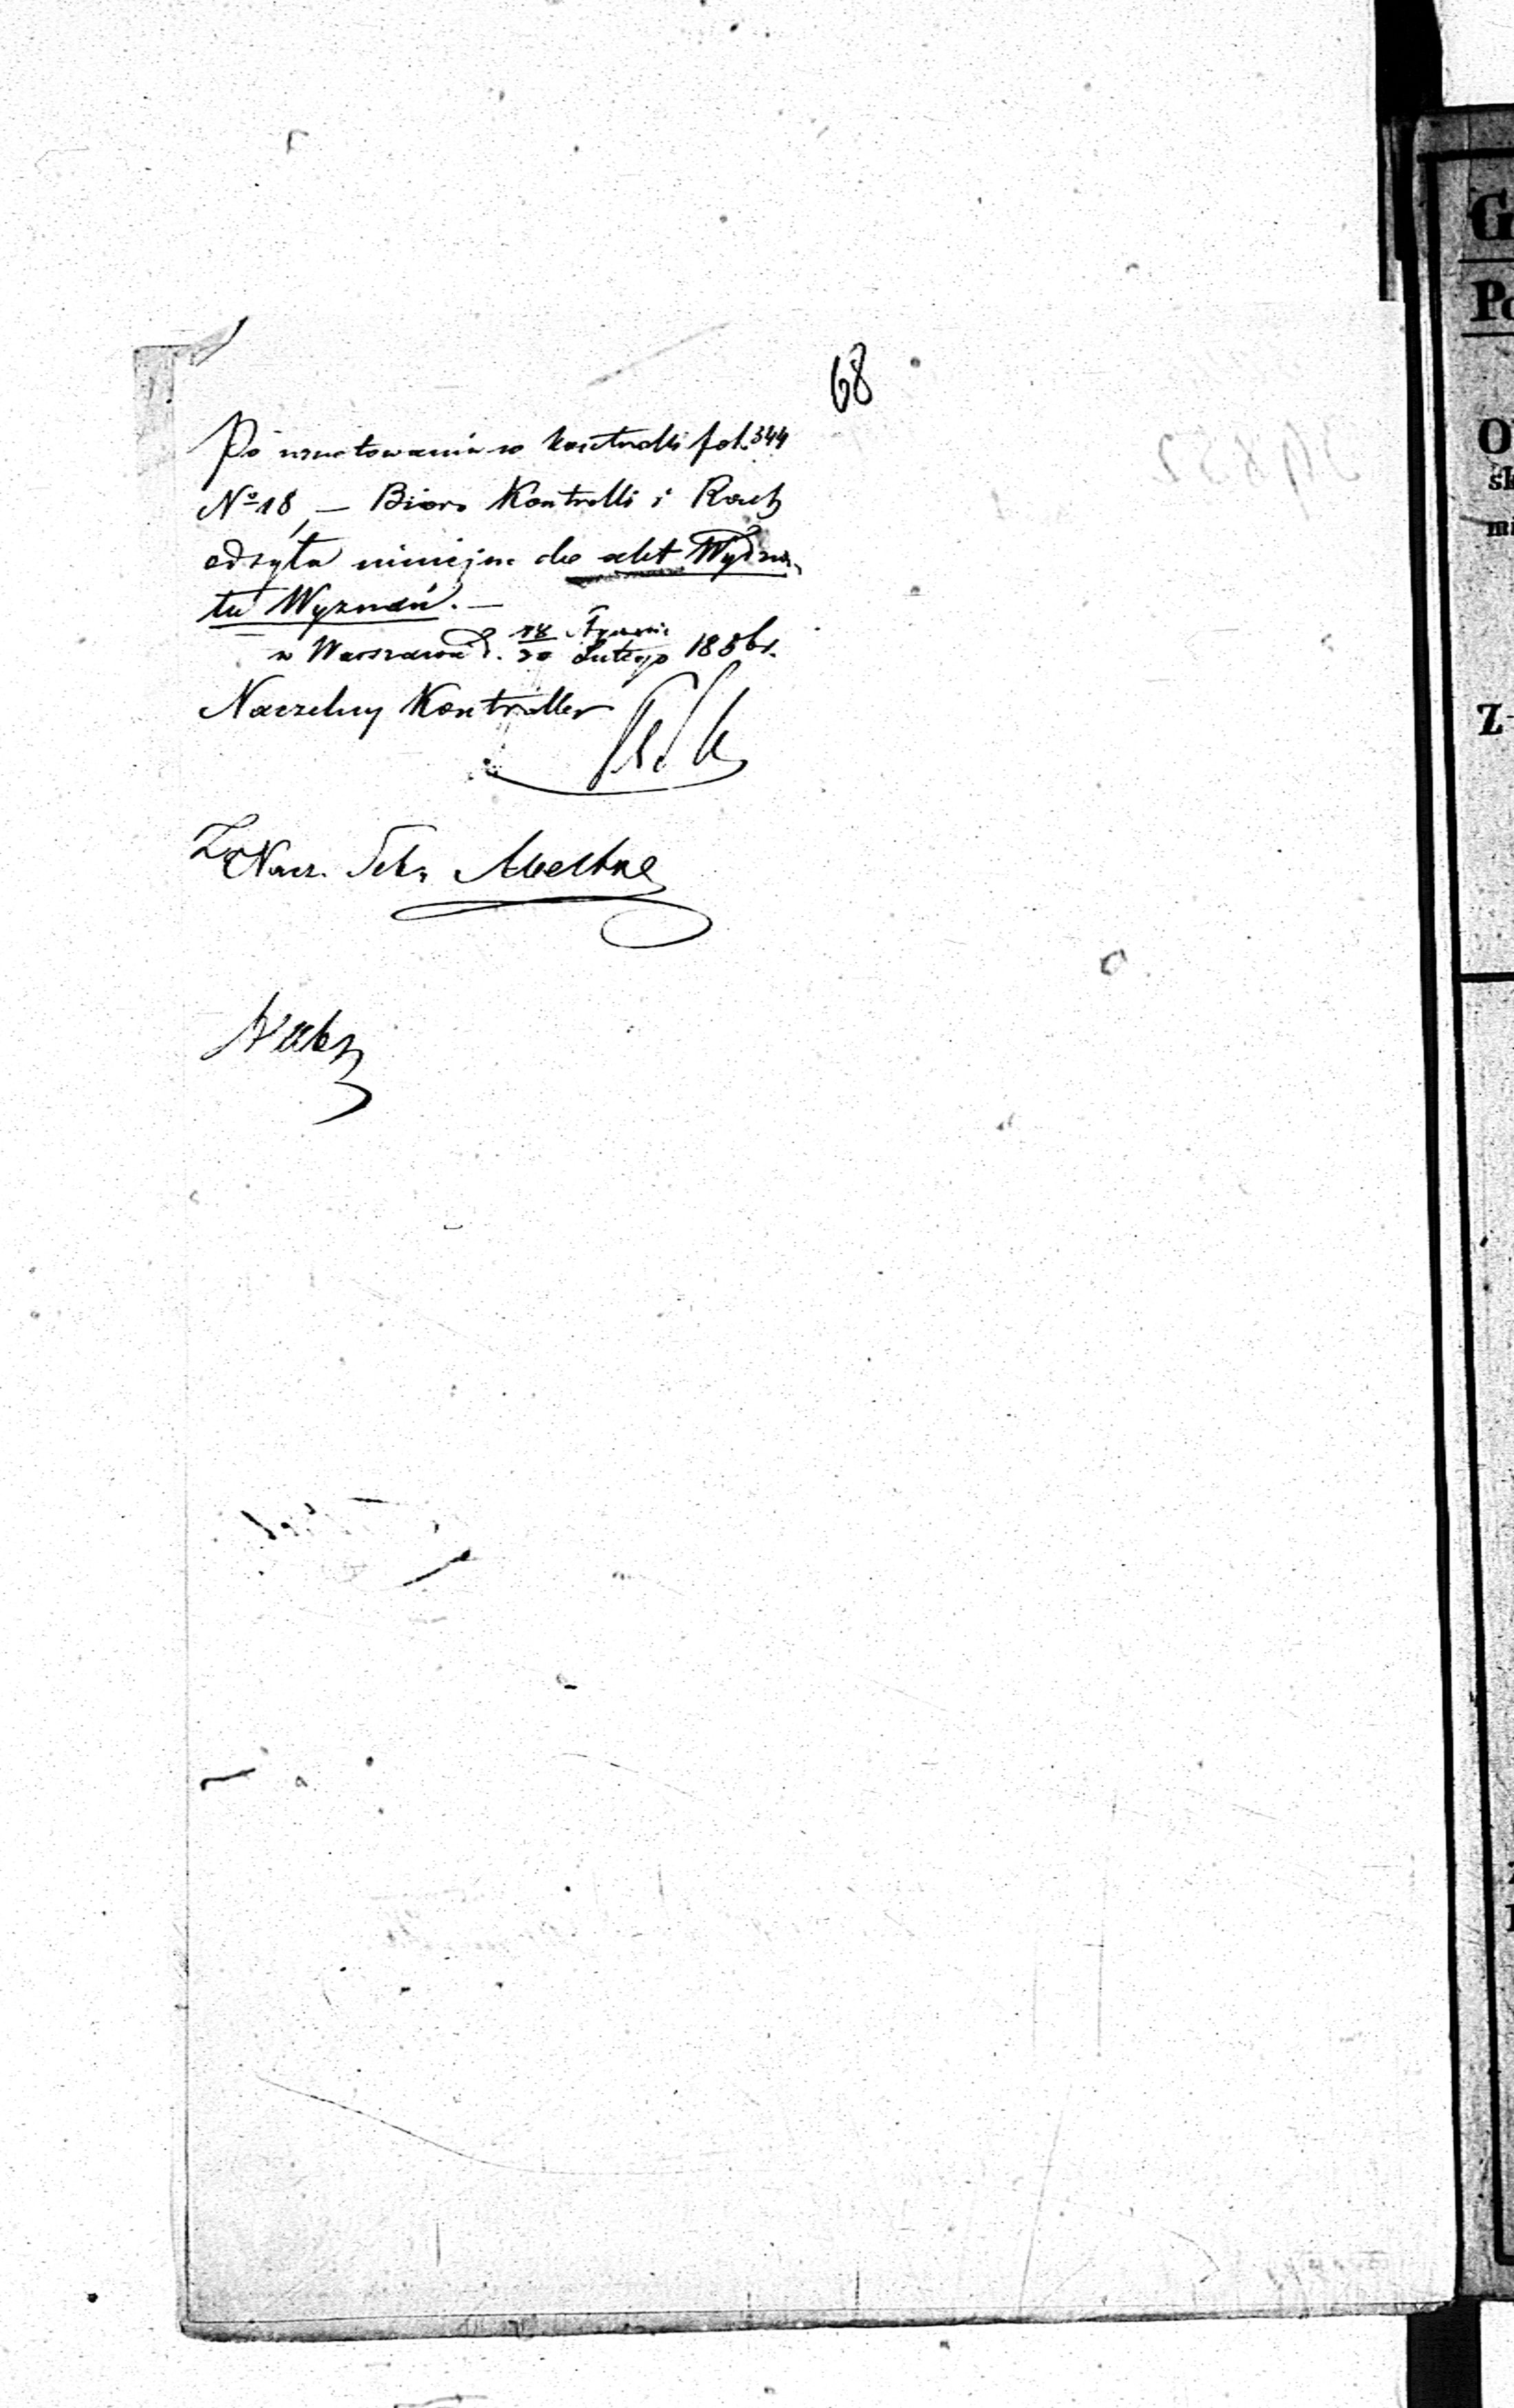 68
Po zanotowaniu w kontrolli fol. 344
No 18 — Biuro Kontrolli i Rach
odsyła niniejsze do akt Wydzia„
łu Wyznań. —
w Warszawie d. 18/30 Stycznia/Lutego 1856 r.
Naczelny Kontroller
Z. Nacz. Sek.
G
Po
O
sk
mi
Z